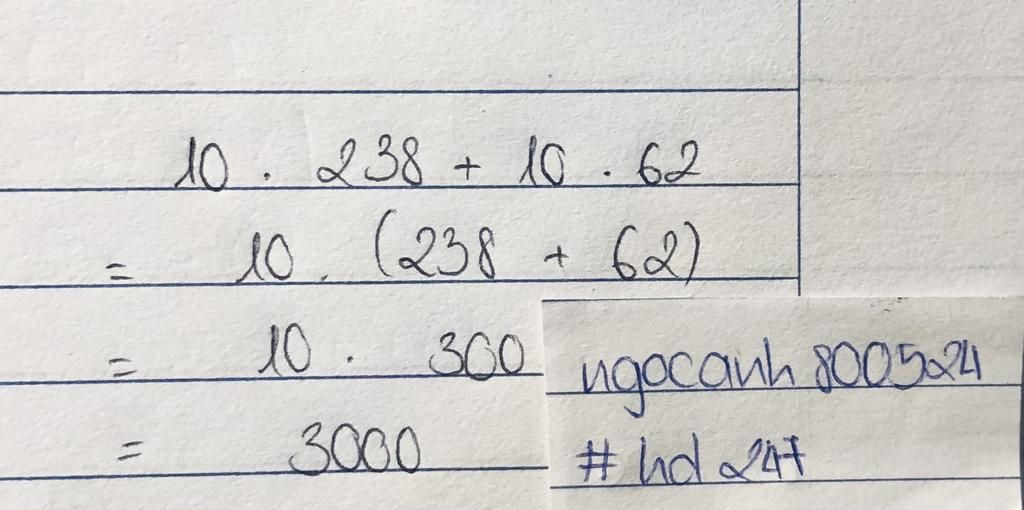 10 . 238 + 10 . 62
= 10 . (238 + 62)
= 10 . 300
= 3000
ngocanh 800524
# hd 247